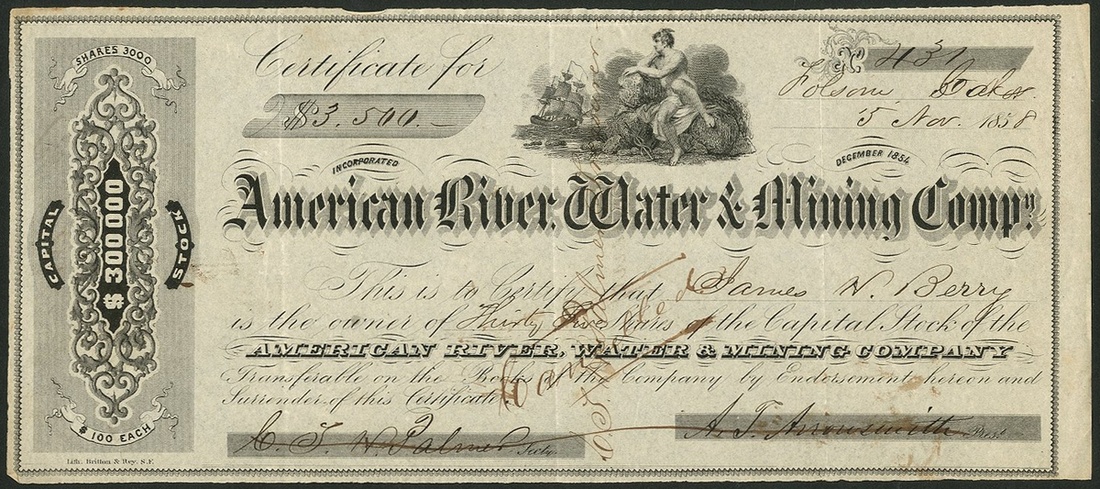 SHARES 3000
CAPITAL
$300000
STOCK
$100 EACH
Certificate for
$3.500.—
No. 437
Folsom
5 Nov. 1858
INCORPORATED
DECEMBER 1854
American River, Water & Mining Compy.
This is to Certify that James N. Berry
is the owner of Thirty Five Shares of the Capital Stock of the
AMERICAN RIVER, WATER & MINING COMPANY
Transferable on the Books of the Company by Endorsement hereon and
Surrender of this Certificate.
Cancelled
C. T. H. Palmer Secty.
A. T. Arrowsmith Prest.
Lith. Britton & Rey. S.F.